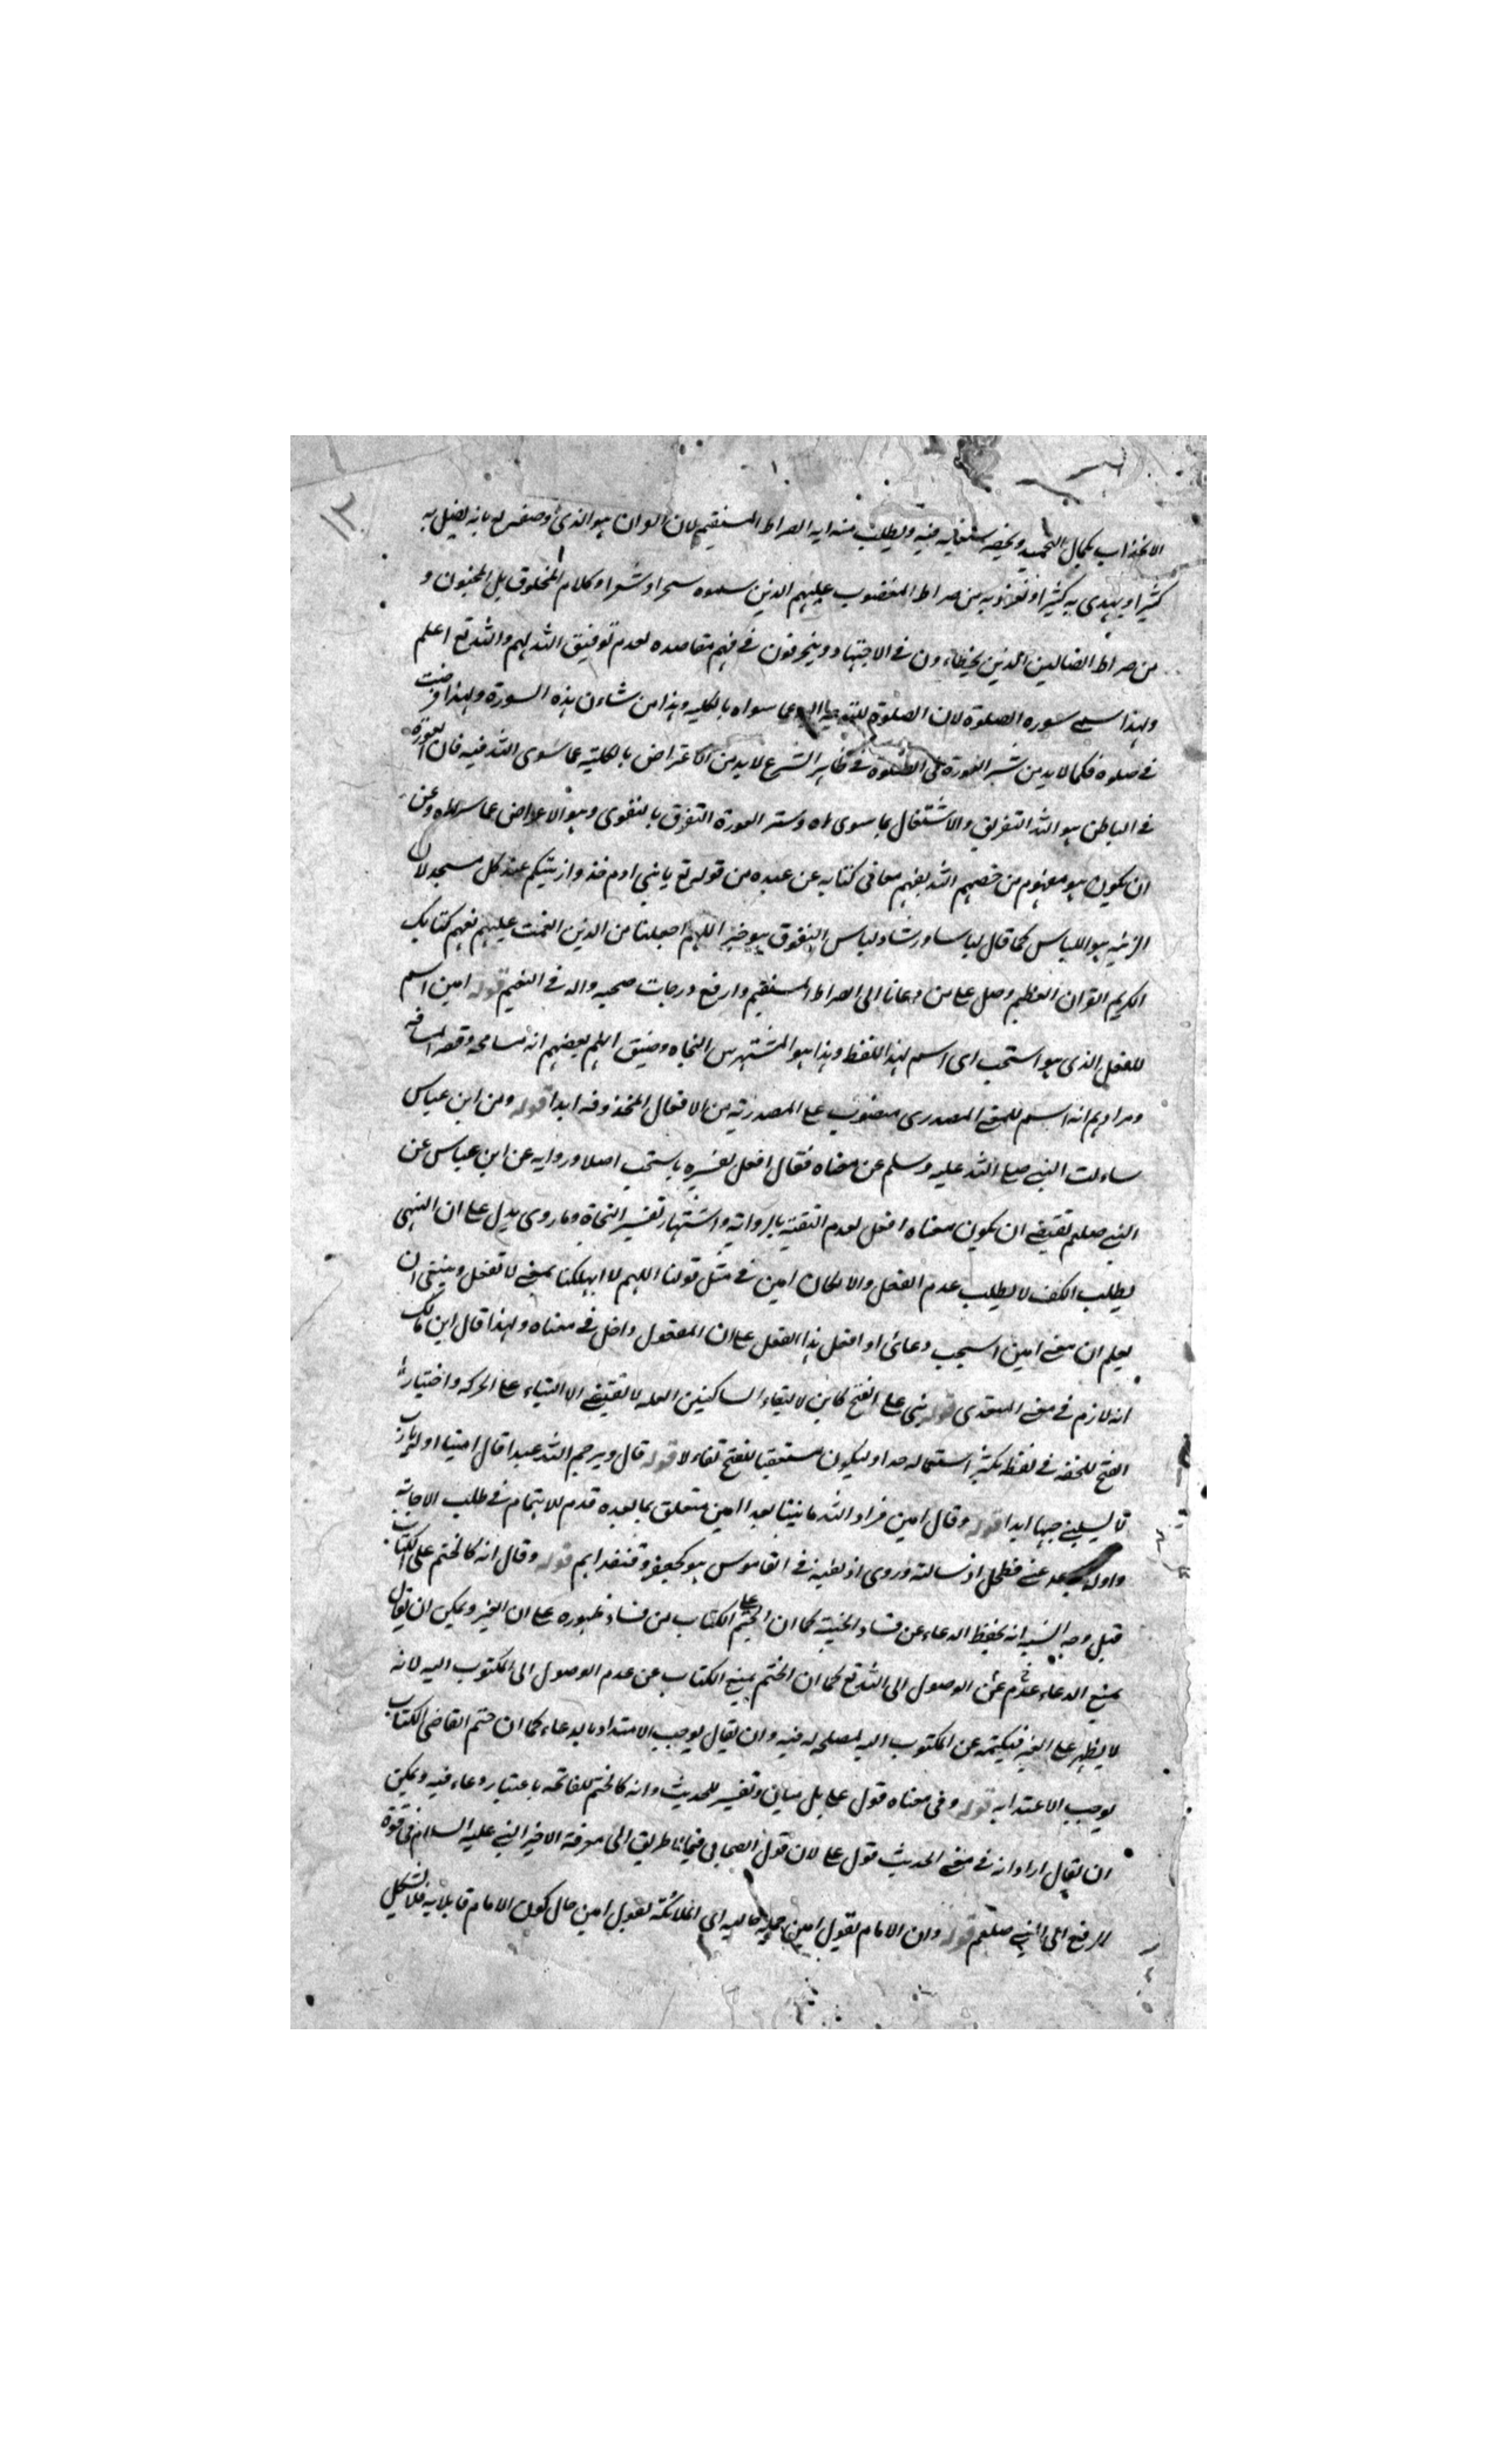 ١٢
الانجذاب بكمال التحميد ويخصه ستعانه فيه ويطلب منه ايه الصراط المستقيم لان القران هو الذي وصفه له بانه يضل به
كثيرا ويهدي به كثيرا ونعوذ به من صراط المغضوب عليهم الذين سموه سحرا وشعرا وكلام المخلوق بل المجنون و
من صراط الضالين الذين يخطاءون في الاجتهاد وينحرفون في فهم مقاصده لعدم توفيق الله لهم والله تع اعلم
ولهذا سمى سوره الصلوة لان الصلوة للتوجه اليه عما سواه بالكليه وهذا من شاءن هذه السورة ولهذا فرضت
في صلوه فكما لا بد من ستر العورة في الصلوة في ظاهر الشرع لا بد من الاعتراض بالكليته عما سوى الله فيه فان العورة
في الباطن هو الله التفريق والاشتغال بما سوى الله وستر العورة التفرق بالتقوى وهو الاعراض عما سواه وعن
ان يكون هو مفهوم من خصهم الله بفهم معاني كتابه عن عبده من قوله تع يا بني ادم خذوا زينتكم عند كل مسجد لان
الزينه هو اللباس كما قال لباسا وريشا ولباس التقوى هو خير اللهم اجعلنا من الذين انعمت عليهم بفهم كتابك
الكريم القران العظيم وصل على من دعانا الى الصراط المستقيم وارفع درجات صحبه واله في النعيم قوله امين اسم
للفعل الذي هو استجب اى اسم لهذا اللفظ وهذا هو المشتهر بين النحاه وضيق اللهم بعضهم انه مسامحه وقصر المسافه
ومرادهم انه اسم للمعنى المصدري منصوب على المصدرية من الافعال المحذوفه ابدا قوله ومن ابن عباس
ساءلت النبي صلى الله عليه وسلم عن معناه فقال افعل تفسيره باستجب اصلا ورواية عن ابن عباس عن
النبي صلعم تقتضي ان يكون معناه افعل لعدم الثقة بالرواية واشتهار تفسير النحاة وما روى يدل على ان النهي
يطلب الكف لا يطلب عدم الفعل والا لكان امين في مثل قولنا اللهم لا تهلكنا بمعنى لا تفعل وينبغي ان
يعلم ان معنى امين استجب دعائي او افعل هذا الفعل على ان المفعول داخل في معناه ولهذا قال ابن مالك
انه لازم في معنى المتعدي قوله بنى على الفتح كاين لالتقاء الساكنين العله لا تقتضي الا البناء على الحركه واختيار
الفتح للخفه في لفظ يكثر استعماله جدا وليكون مستعقبا للفتح تفاءلا قوله قال ويرحم الله عبدا قال امينا اوله يارب
لا تسلبني حبها ابدا قوله وقال امين فزاد الله ما بيننا بعدا امين متعلق بما بعده قدم للاهتمام في طلب الاجابة
واوله تباعد عني فطحل اذ سالته وروى اذ لقيته في القاموس هو كجعفر وقنفذ اسم قوله وقال انه كالختم على الكتاب
قيل وجه الشبه انه يحفظ الدعاء عن فساد الخيبة كما ان الختم على الكتاب من فساد ظهوره على ان الغير ويمكن ان يقال
يمنع الدعاء عن عدم الوصول الى الله تع كما ان الختم يمنع الكتاب عن عدم الوصول الى المكتوب اليه لانه
لا يظهر على الغير فيكتمه عن المكتوب اليه لمصلحه له فيه وان يقال يوجب الاعتداد بالدعاء كما ان ختم القاضي الكتاب
يوجب الاعتداد به قوله وفي معناه قول على بل بيان وتفسير للحديث وانه كالختم للفاتحه باعتبار دعاء فيه ويمكن
ان يقال اراد انه في معنى الحديث قول على لان قول الصحابي فيما لا طريق الى معرفة الا خبر النبي عليه السلام في قوة
الرفع الى النبي صلعم قوله وان الامام يقول امين جملة حاليه اى الملائكة تقول امين حال كون الامام قايلا به فلا يشكل